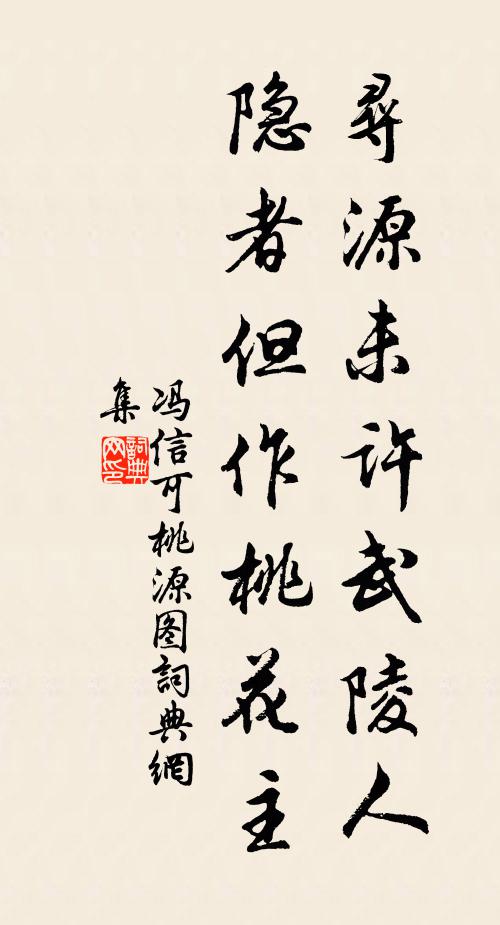 尋源未许武陵人
隐者但作桃花主
冯信可桃源图詞典網
集
詞典網印